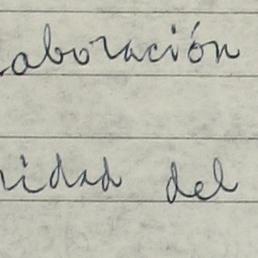 laboración
nidad del